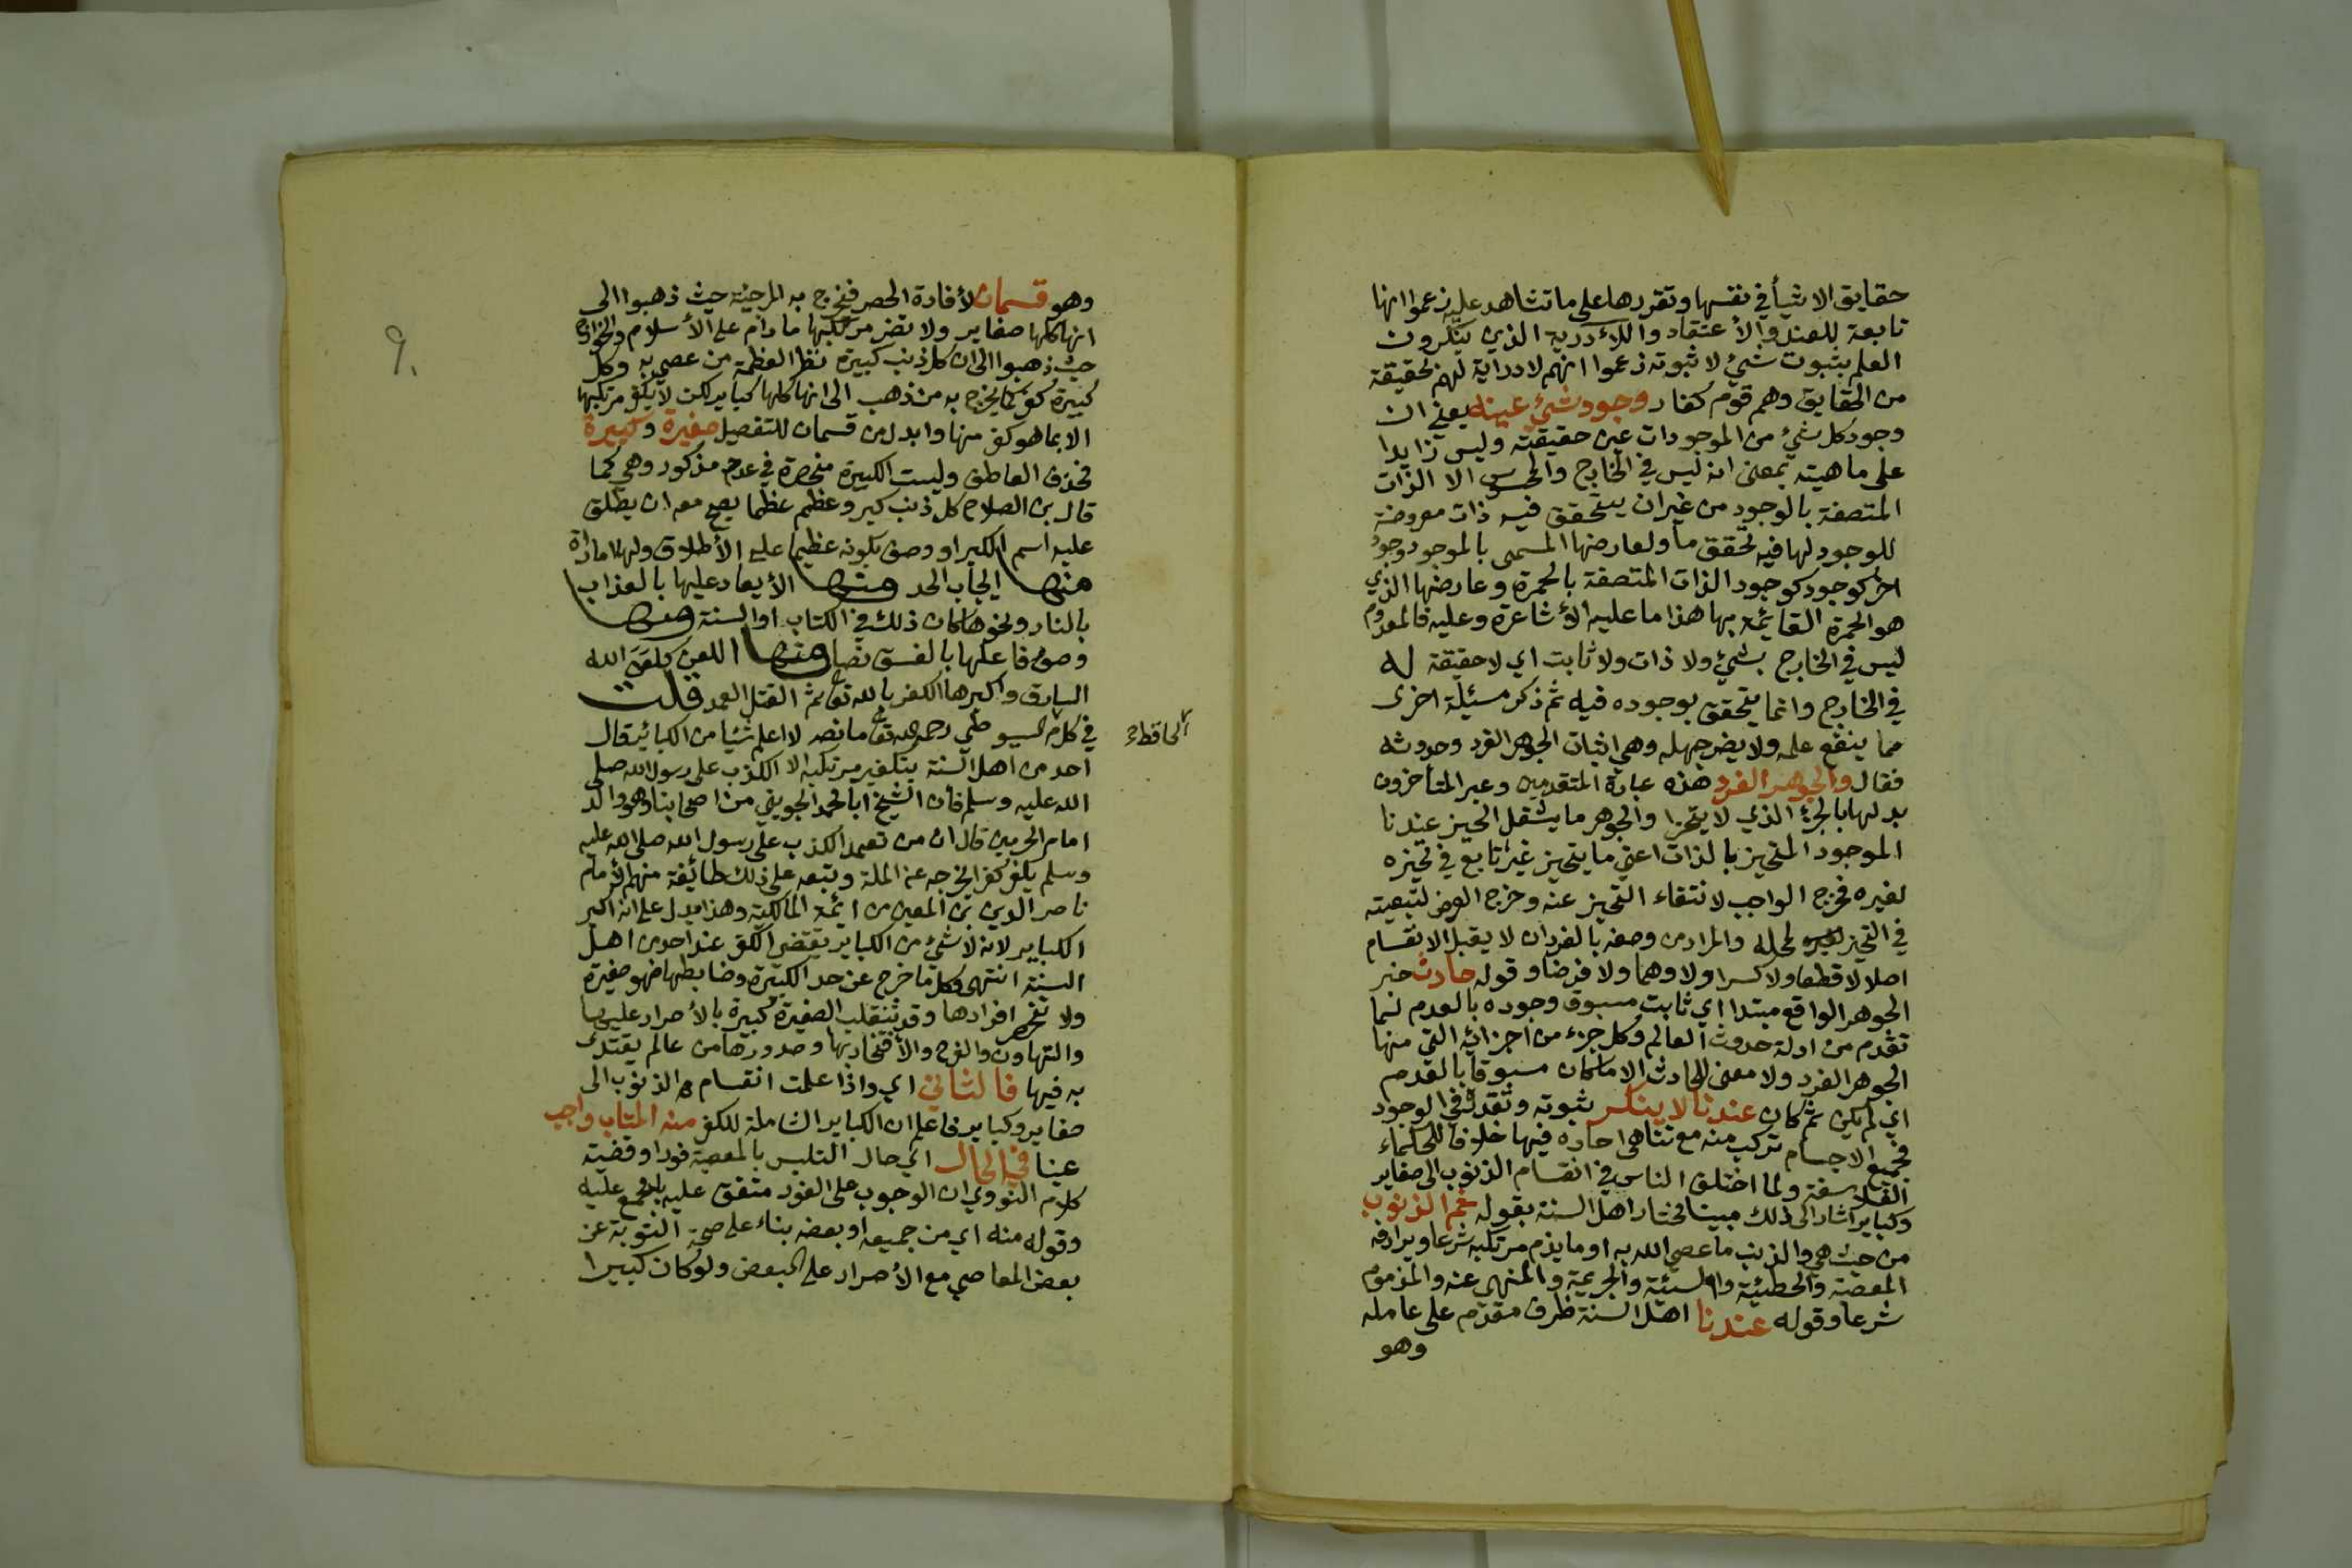 حقايق الاشيأ في نفسها وتقررها على ما تشاهد عليه زعموا انها
تابعة للعند والأعتقاد واللاءدرية الذي ينكرون
العلم بثبوت شئ لا ثبوته زعموا انهم لا دراية لهم بحقيقة
من الحقايق وهم قوم كفار وجود شئ عينه يعني ان
وجود كل شئ من الموجودات عين حقيقته وليس زايدا
على ماهيته بمعنى انه ليس في الخارج والمحسوس الا الذات
المتصفة بالوجود من غير ان يتحقق فيه ذات معروضة
للوجود لها فيه تحقق ما ولعارضها المسمى بالموجود وجود
اخر كوجود كوجود الذات المتصفة بالحمرة وعارضها الذي
هو الحمرة القائمة بها هذا ما عليه الأشاعرة وعليه فالمعدوم
ليس في الخارج بشئ ولا ذات ولا ثابت اي لا حقيقة له
في الخارج وانما يتحقق بوجوده فيه ثم ذكر مسئلة اخرى
مما ينفع علمه ولا يضر جهله وهي اثبات الجوهر الفرد وحدوثه
فقال والجوهر الفرد هذه عبارة المتقدمين وعبر المتأخرون
بدلها بالجزء الذي لا يتجزا والجوهر ما يشغل الحيز عندنا
الموجود المتحيز بالذات اعني ما يتحيز غير تابع في تحيزه
لغيره فخرج الواجب لانتقاء التحيز عنه وخرج العرض لتبعيته
في التحيز لمحله والمراد من وصفه بالفرد ان لا يقبل الانقسام
اصلا لا قطعا ولا كسرا ولا وهما ولا فرضا وقوله حادث خبر
الجوهر الواقع مبتدا اي ثابت مسبوق وجوده بالعدم لما
تقدم من ادلة حدوث العالم وكل جزء من اجزائه التي منها
الجوهر الفرد ولا معنى للحادث الا ما كان مسبوقا بالعدم
اي لم يكن ثم كان عندنا لا ينكر ثبوته وتقدمه في الوجود
فجميع الاجسام تركب منه مع تناهى احاده فيها خلافا للحكماء
الفلاسفة ولما اختلف الناس في انقسام الذنوب الى صغاير
وكباير اشار الى ذلك مبينا مختار اهل السنة بقوله ثم الذنوب
من حيث هي والذنب ما عصى الله به او ما يذم مرتكبه شرعا ويرادفه
المعصية والخطيئة والسيئة والجريمة والمنهى عنه والمذموم
شرعا وقوله عندنا اهل السنة ظرف مقدم على عامله
وهو
٩٠
وهو قسمان لأفادة الحصر فيخرج به المرجئة حيث ذهبوا الى
انها كلها صغاير ولا تضر مرتكبها ما دام على الأسلام والخوارج
حيث ذهبوا الى ان كل ذنب كبيرة نظر العظمة من عصى به وكل
كبيرة كفر كما يخرج به من ذهب الى انها كلها كباير لكن لا يكفر مرتكبها
الا بما هو كفر منها وابدل من قسمان للتفصيل صغيرة وكبيرة
فحذف العاطف وليست الكبيرة منحصرة في عدد مذكور وهي كما
قال بن الصلاح كل ذنب كبر وعظم عظما يصح معه ان يطلق
عليه اسم الكبير او وصف بكونه عظيما على الأطلاق ولها امارة
منها ايجاب الحد ومنها الأيعاد عليها بالعذاب
بالنار ونحوها كان ذلك في الكتاب او السنة ومنها
وصف فاعلها بالفسق نصا ومنها اللعن كلعن الله
السارق واكبرها الكفر بالله تعا ثم القتل العمد قلت
في كلام السيوطي رحمه الله تعا ما نصه لا اعلم شيا من الكبائر قال
الحافظ
احد من اهل السنة بتكفير مرتكبه الا الكذب على رسول الله صلى
الله عليه وسلم فان الشيخ ابا محمد الجويني من اصحابنا وهو والد
امام الحرمين قال ان من تعمد الكذب على رسول الله صلى الله عليه
وسلم يكفر كفرا يخرجه عن الملة وتبعه على ذلك طائفة منهم الأمام
ناصر الدين بن المعين من ائمة المالكية وهذا يدل على انه اكبر
الكباير لانه لا شئ من الكباير يقتضى الكفر عند احد من اهل
السنة انتهى وكل ما خرج عن حد الكبيرة وضابطها فهو صغيرة
ولا تنحصر افرادها وقد تنقلب الصغيرة كبيرة بالأصرار عليها
والتهاون والفرح والأفتخار بها وصدورها من عالم يقتدى
به فيها فالثاني اي واذا علمت انقسام الذنوب الى
صغاير وكباير فاعلم ان الكباير الشاملة للكفر منه المتاب واجب
عينا في الحال اي حال التلبس بالمعصية فورا وقضية
كلام النووي ان الوجوب على الفور متفق عليه بل مجمع عليه
وقوله منه اي من جميعه او بعضه بناء على صحة التوبة عن
بعض المعاصي مع الأصرار على البعض ولو كان كبيرا